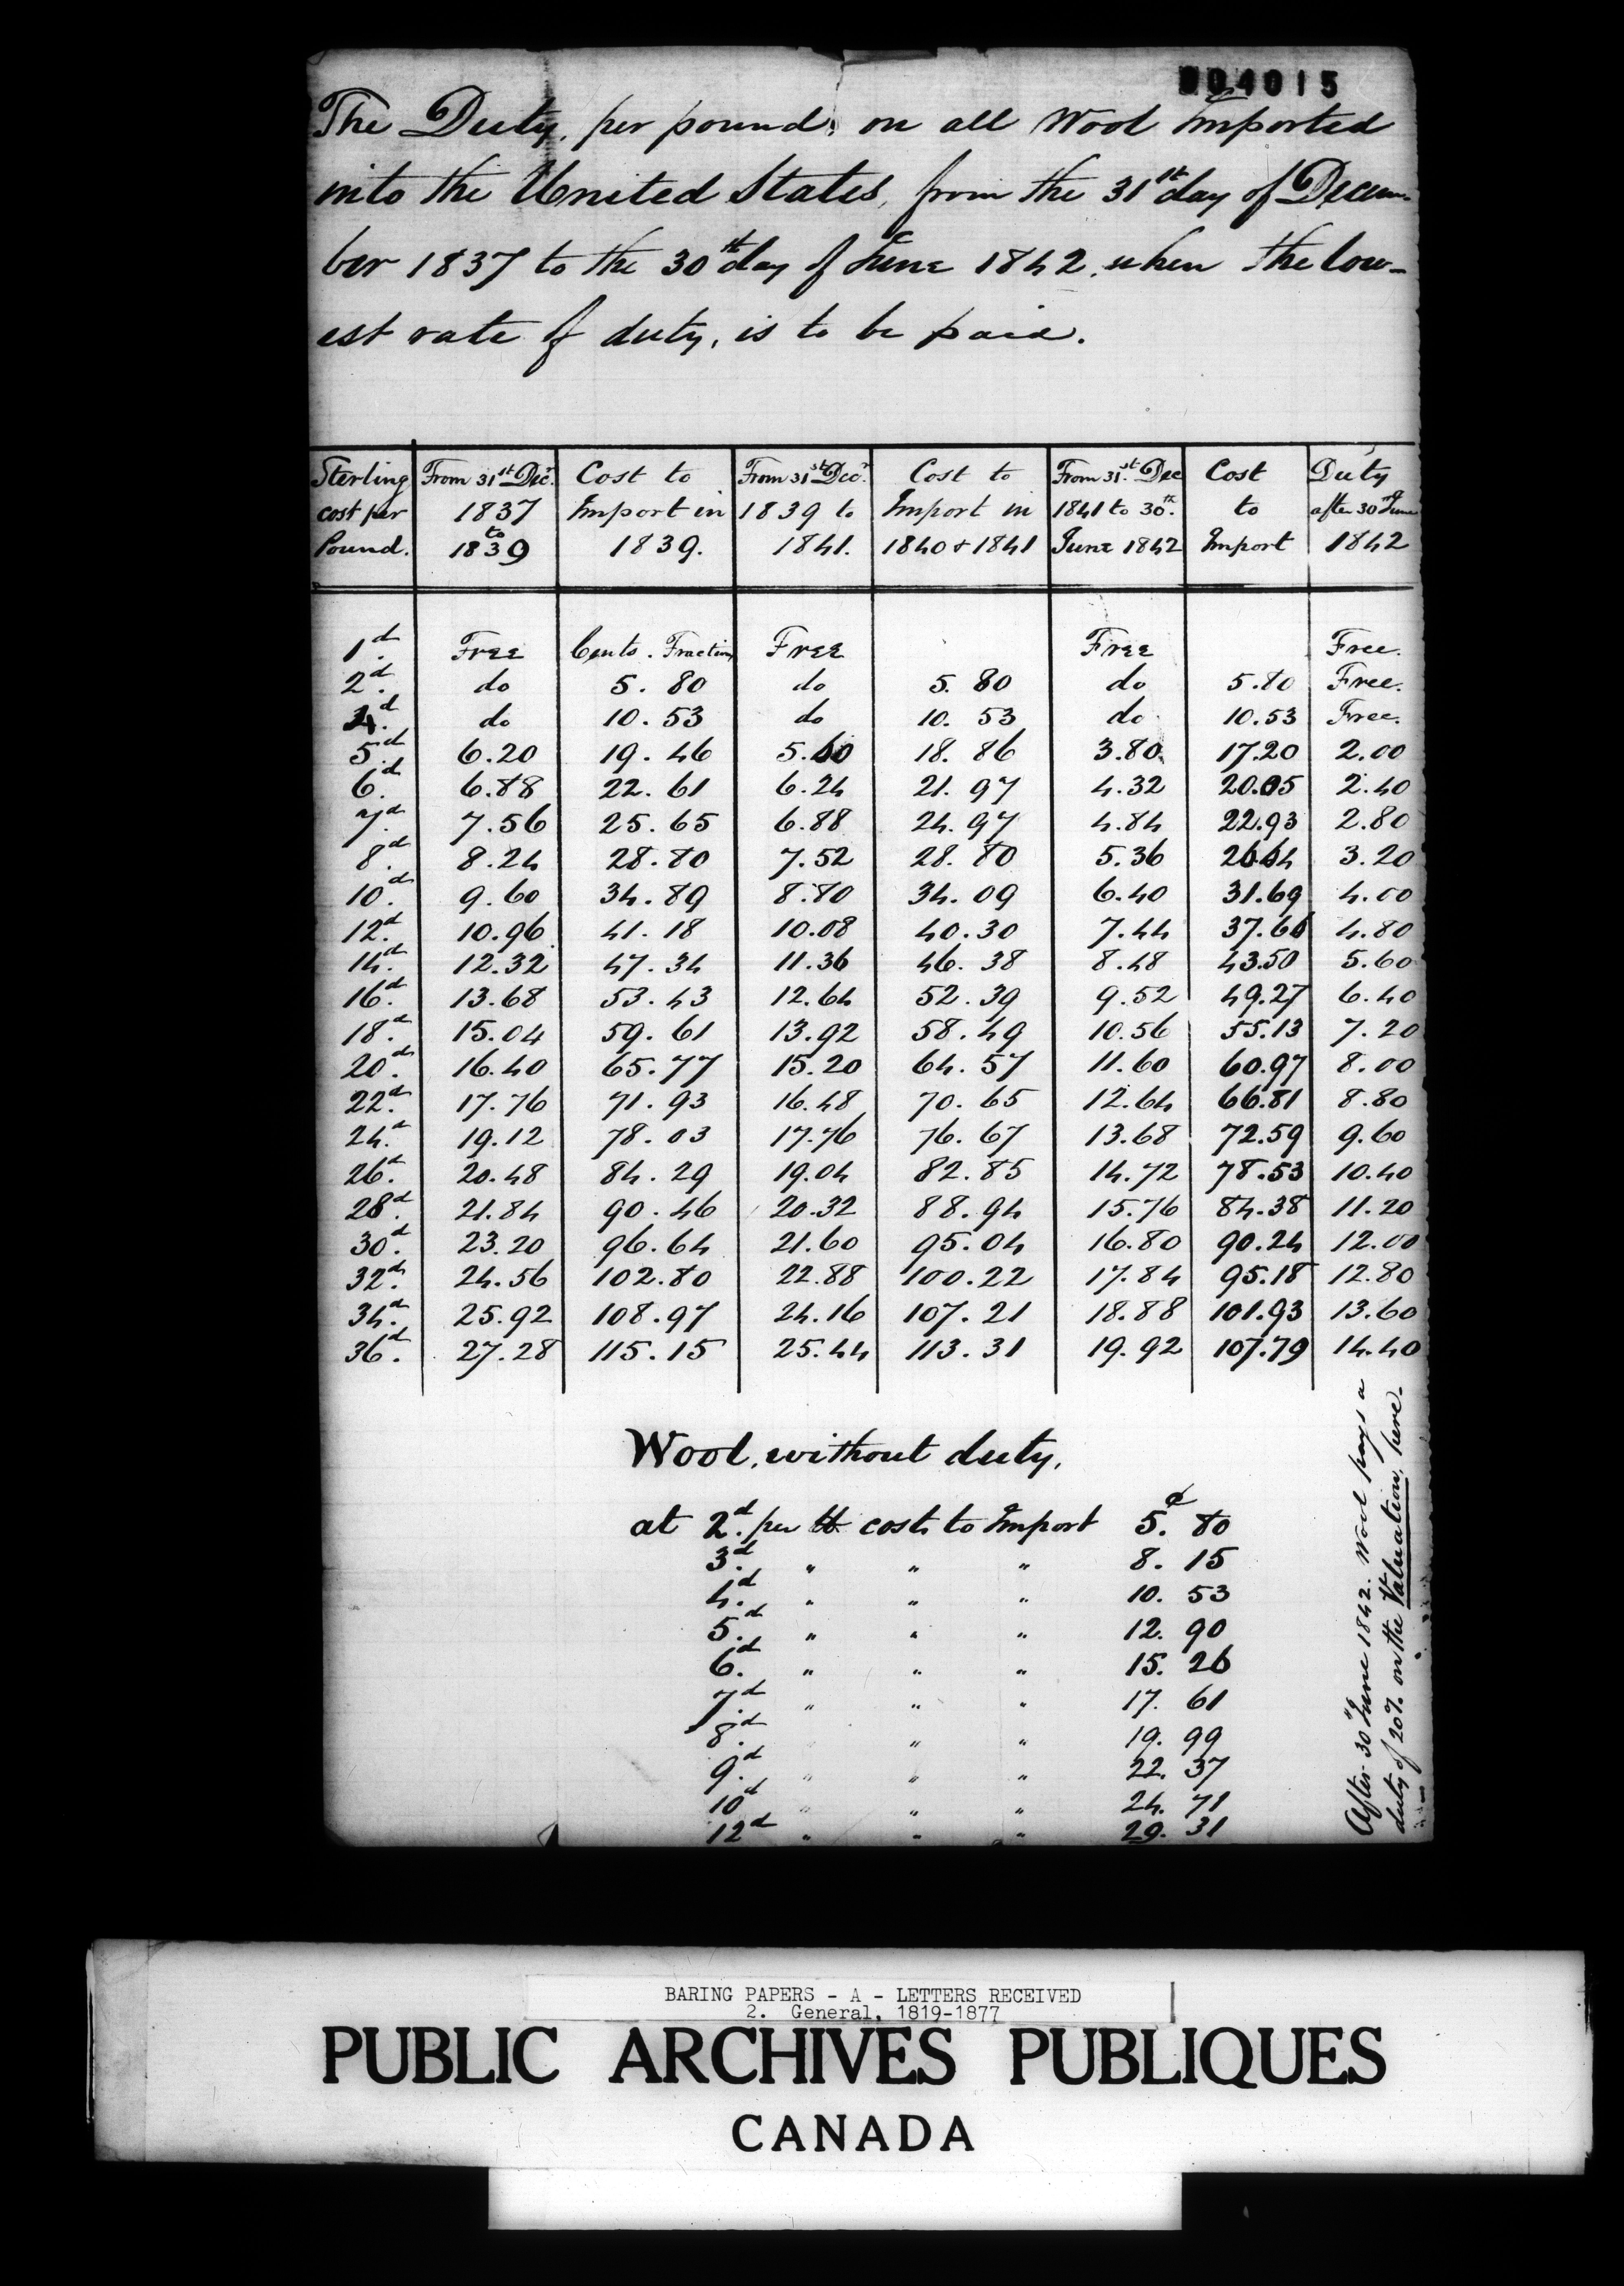 004015
The Duty, per pound, on all Wool Imported
into the United States, from the 31st day of Decem-
ber 1837 to the 30th day of June 1842, when the low-
est rate of duty, is to be paid.
Sterling cost per Pound. | From 31st Decr. 1837 to 1839 | Cost to Import in 1839. | From 31st Decr. 1839 to 1841. | Cost to Import in 1840 & 1841 | From 31st. Dec 1841 to 30th. June 1842 | Cost to Import | Duty after 30th June 1842
1d. | Free | Cents. Fraction | Free | | Free | | Free.
2d. | do | 5. 80 | do | 5. 80 | do | 5.80 | Free.
4d. | do | 10. 53 | do | 10. 53 | do | 10.53 | Free.
5d. | 6.20 | 19. 46 | 5.60 | 18. 86 | 3.80 | 17.20 | 2.00
6d. | 6.88 | 22. 61 | 6.24 | 21. 97 | 4.32 | 20.05 | 2.40
7d. | 7.56 | 25. 65 | 6.88 | 24. 97 | 4.84 | 22.93 | 2.80
8d. | 8.24 | 28. 80 | 7.52 | 28. 80 | 5.36 | 26.64 | 3.20
10d. | 9.60 | 34. 89 | 8.80 | 34. 09 | 6.40 | 31.69 | 4.00
12d. | 10.96 | 41. 18 | 10.08 | 40. 30 | 7.44 | 37.66 | 4.80
14d. | 12.32 | 47. 34 | 11.36 | 46. 38 | 8.48 | 43.50 | 5.60
16d. | 13.68 | 53. 43 | 12.64 | 52. 39 | 9.52 | 49.27 | 6.40
18d. | 15.04 | 59. 61 | 13.92 | 58. 49 | 10.56 | 55.13 | 7.20
20d. | 16.40 | 65. 77 | 15.20 | 64. 57 | 11.60 | 60.97 | 8.00
22d. | 17.76 | 71. 93 | 16.48 | 70. 65 | 12.64 | 66.81 | 8.80
24d. | 19.12 | 78. 03 | 17.76 | 76. 67 | 13.68 | 72.59 | 9.60
26d. | 20.48 | 84. 29 | 19.04 | 82. 85 | 14.72 | 78.53 | 10.40
28d. | 21.84 | 90. 46 | 20.32 | 88. 94 | 15.76 | 84.38 | 11.20
30d. | 23.20 | 96. 64 | 21.60 | 95. 04 | 16.80 | 90.24 | 12.00
32d. | 24.56 | 102. 80 | 22.88 | 100. 22 | 17.84 | 95.18 | 12.80
34d. | 25.92 | 108. 97 | 24.16 | 107. 21 | 18.88 | 101.93 | 13.60
36d. | 27.28 | 115. 15 | 25.44 | 113. 31 | 19.92 | 107.79 | 14.40
Wool, without duty,
at 2d. per lb costs to Import 5.¢ 80
3d. " " " 8. 15
4d. " " " 10. 53
5d. " " " 12. 90
6d. " " " 15. 26
7d. " " " 17. 61
8d. " " " 19. 99
9d. " " " 22. 37
10d " " " 24. 71
12d " " " 29. 31
After 30th June 1842. Wool pays a
duty of 20% on the Valuation, here.
BARING PAPERS - A - LETTERS RECEIVED
2. General, 1819-1877
PUBLIC ARCHIVES PUBLIQUES
CANADA